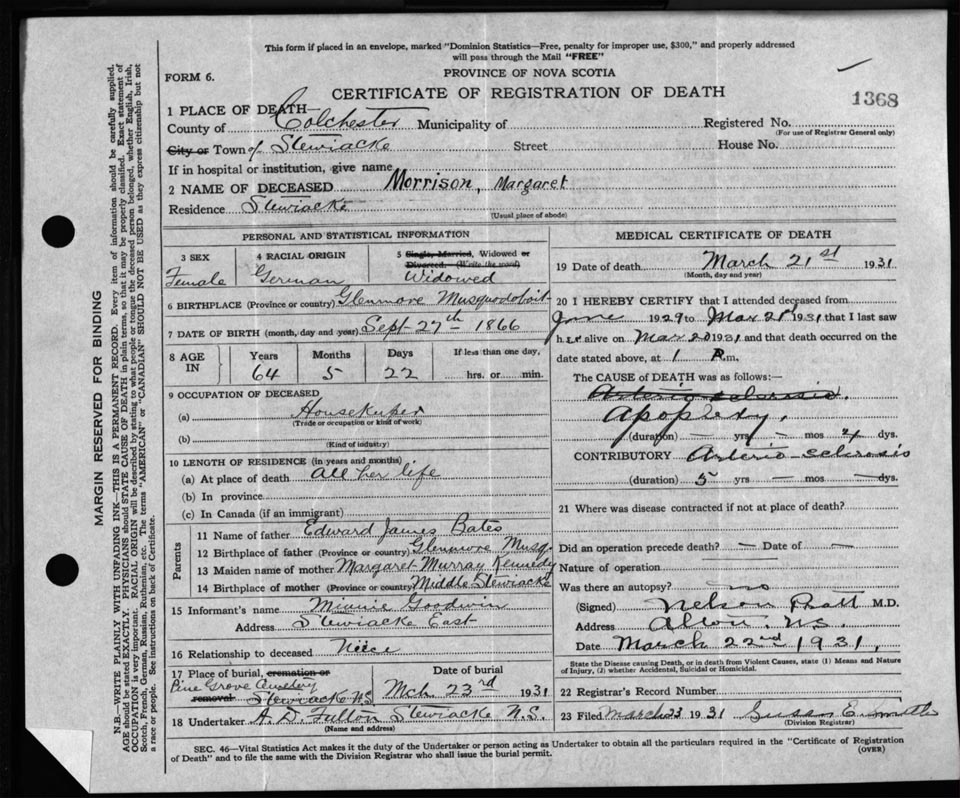 This form if placed in an envelope, marked "Dominion Statistics—Free, penalty for improper use, $300," and properly addressed
will pass through the Mail "FREE"
FORM 6.
PROVINCE OF NOVA SCOTIA
CERTIFICATE OF REGISTRATION OF DEATH
1368
1 PLACE OF DEATH—
County of Colchester Municipality of Registered No.
(For use of Registrar General only)
City or Town of Stewiacke Street House No.
If in hospital or institution, give name
2 NAME OF DECEASED Morrison, Margaret
Residence Stewiacke
(Usual place of abode)
PERSONAL AND STATISTICAL INFORMATION
3 SEX
Female
4 RACIAL ORIGIN
German
5 Single, Married, Widowed or
Divorced. (Write the word)
Widowed
6 BIRTHPLACE (Province or country) Glenmore Musquodoboit
7 DATE OF BIRTH (month, day and year) Sept 27th 1866
8 AGE IN
Years Months Days If less than one day,
64 5 22 hrs. or min.
9 OCCUPATION OF DECEASED
(a) Housekeeper
(Trade or occupation or kind of work)
(b)
(Kind of industry)
10 LENGTH OF RESIDENCE (in years and months)
(a) At place of death all her life
(b) In province
(c) In Canada (if an immigrant)
Parents
11 Name of father Edward James Bates
12 Birthplace of father (Province or country) Glenmore Musq.
13 Maiden name of mother Margaret Murray Kennedy
14 Birthplace of mother (Province or country) Middle Stewiacke
15 Informant's name Minnie Goodwin
Address Stewiacke East
16 Relationship to deceased Niece
17 Place of burial, cremation or Date of burial
Pine Grove Cemetery
removal Stewiacke N.S. Mch 23rd 1931
18 Undertaker A. D. Fulton Stewiacke N.S.
(Name and address)
MEDICAL CERTIFICATE OF DEATH
19 Date of death March 21st 1931
(Month, day and year)
20 I HEREBY CERTIFY that I attended deceased from
June 1929 to Mar 21st 1931 that I last saw
her alive on Mar 20 1931 and that death occurred on the
date stated above, at 1 P.m.
The CAUSE OF DEATH was as follows:—
Arterio sclerosis.
Apoplexy.
(duration) — yrs — mos dys.
CONTRIBUTORY Arterio-sclerosis
(duration) 5 yrs — mos — dys.
21 Where was disease contracted if not at place of death?
Did an operation precede death? — Date of —
Nature of operation
Was there an autopsy? no
(Signed) Nelson Pratt M.D.
Address N.S.
Date March 22nd 1931,
State the Disease causing Death, or in death from Violent Causes, state (1) Means and Nature
of Injury, (2) whether Accidental, Suicidal or Homicidal.
22 Registrar's Record Number
23 Filed March 23 1931 Susan E. Smith
(Division Registrar)
SEC. 46—Vital Statistics Act makes it the duty of the Undertaker or person acting as Undertaker to obtain all the particulars required in the "Certificate of Registration
of Death" and to file the same with the Division Registrar who shall issue the burial permit.
(OVER)
MARGIN RESERVED FOR BINDING
N.B. WRITE PLAINLY WITH UNFADING INK—THIS IS A PERMANENT RECORD. Every item of information should be carefully supplied.
AGE should be stated EXACTLY. PHYSICIANS should STATE CAUSE OF DEATH in plain terms, so that it may be properly classified. Exact statement of
OCCUPATION is very important. RACIAL ORIGIN will be described by stating to what people or tongue the deceased person belonged, whether English, Irish,
Scotch, French, German, Russian, Ruthenian, etc. The terms "AMERICAN" or "CANADIAN" SHOULD NOT BE USED as they express citizenship but not
a race or people. See instructions on back of Certificate.